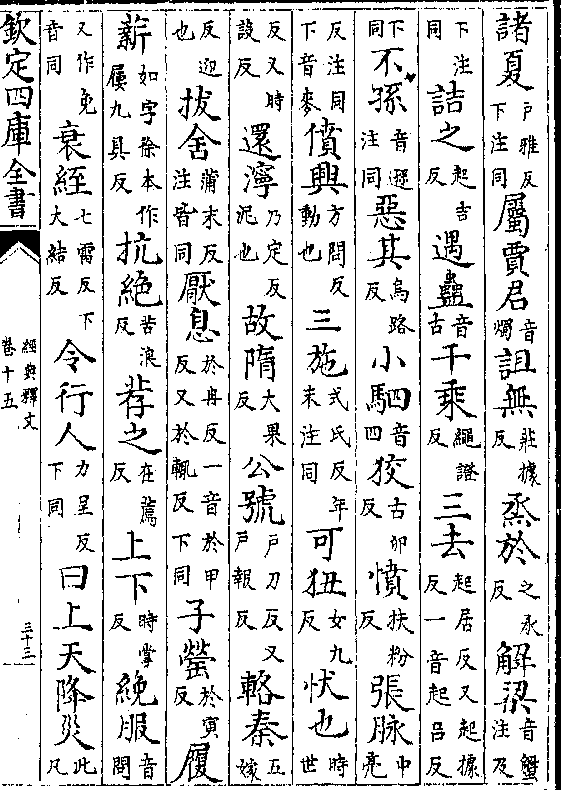 諸夏戶雅反下注同屬賈君音燭詛無莊據反烝於之承反解梁音蟹注及
下注同詰之起吉反遇蠱音古千乘繩證反三去起居反又起據反一音起呂反
下同不孫音遜注同惡其烏路反小駟音四狡古卯反憤扶粉反張脉中亮
反注同下音麥僨興方問反動也三施式氏反年末注同可狃女九反忕也時世
反又時設反還濘乃定反泥也故隋大果反公號戶刀反又戶報反輅秦五嫁
反迎也拔舍蒲末反注音同厭息於冉反一音於甲反又於輒反下同子罃於寅反履
薪如字徐本作屨九具反抗絶苦浪反荐之在薦反上下時掌反絻服音問
又作免音同衰絰七雷反下大結反令行人力呈反下同曰上天降災此凡
欽定四庫全書 經典釋文卷十五 三十三